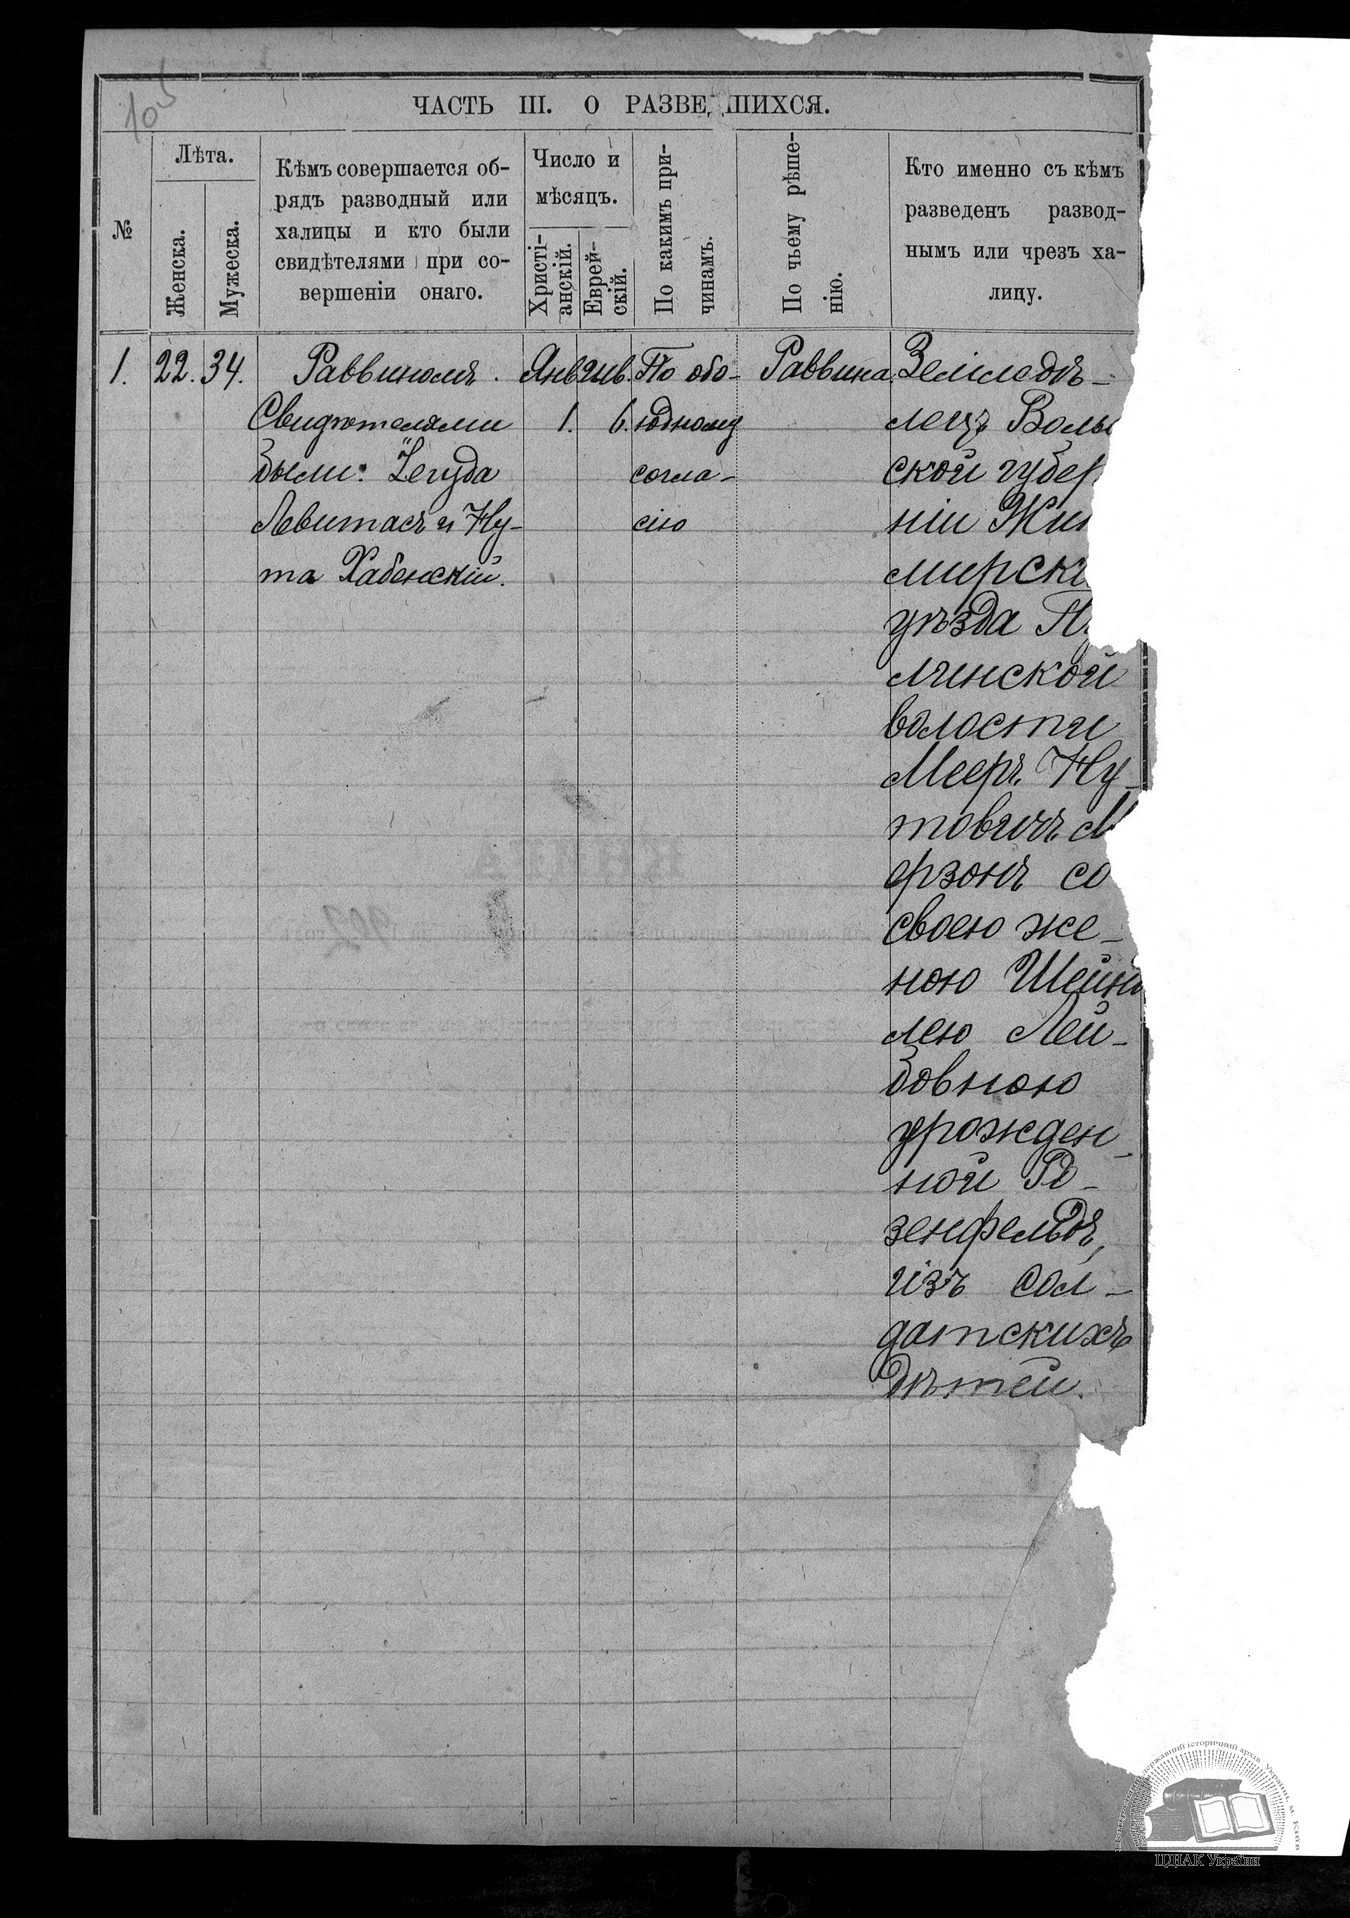 105
ЧАСТЬ III. О РАЗВЕДШИХСЯ.
№
Лѣта.
Женска.
Мужеска.
Кѣмъ совершается об-
рядъ разводный или
халицы и кто были
свидѣтелями при со-
вершеніи онаго.
Число и
мѣсяцъ.
Христі-
анскій.
Еврей-
скій.
По какимъ при-
чинамъ.
По чьему рѣше-
нію.
Кто именно съ кѣмъ
разведенъ развод-
нымъ или чрезъ ха-
лицу.
1.
22.
34.
Раввиномъ.
Свидѣтелями
были: Іегуда
Левитасъ и Ну-
та Хабенскій.
Янв
1.
6.
По обо-
юдному
согла-
сію
Раввина.
Земледѣ-
лецъ Волы
ской губер
ніи Жит
мирска
уѣзда П
линской
волости
Мееръ Ну-
товичъ М
ерзонъ со
своею же-
ною Шейн
лею Лей-
бовною
урожден-
ной Ро-
зенфельдъ,
изъ сол-
датскихъ
дѣтей.
КНИГА
1902
ЦДІАК України